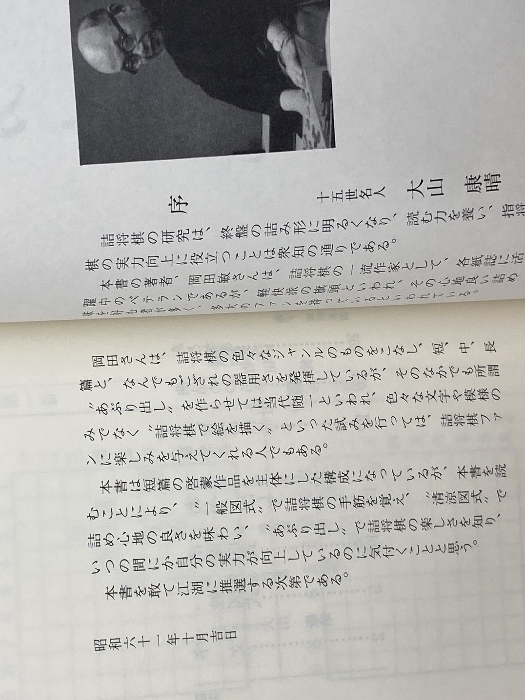 序
十五世名人
大山 康晴
詰将棋の研究は、終盤の詰み形に明るくなり、読む力を養い、指将
棋の実力向上に役立つことは衆知の通りである。
本書の著者、岡田敏さんは、詰将棋の一流作家として、各紙誌に活
躍中のベテランであるが、軽快派の驍頭といわれ、その心地良い詰め
岡田さんは、詰将棋の色々なジャンルのものをこなし、短、中、長
篇と、なんでもござれの器用さを発揮しているが、そのなかでも所謂
〝あぶり出し〟を作らせては当代随一といわれ、色々な文字や模様の
みでなく〝詰将棋で絵を描く〟といった試みを行っては、詰将棋ファ
ンに楽しみを与えてくれる人でもある。
本書は短篇の啓蒙作品を主体にした構成になっているが、本書を読
むことにより、〝一般図式〟で詰将棋の手筋を覚え、〝清涼図式〟で
詰め心地の良さを味わい、〝あぶり出し〟で詰将棋の楽しさを知り、
いつの間にか自分の実力が向上しているのに気付くことと思う。
本書を敢て江湖に推選する次第である。
昭和六十一年十月吉日